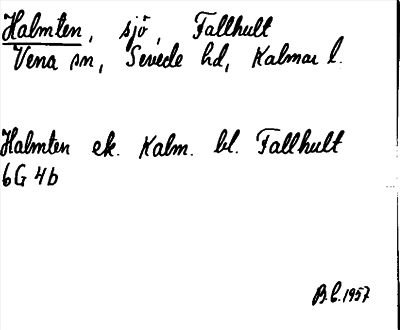 Halmten, sjö, Fallhult
Vena sn, Sevede hd, Kalmar l.
Halmten ek. Kalm. bl. Fallhult
6G 4b
B.C. 1957